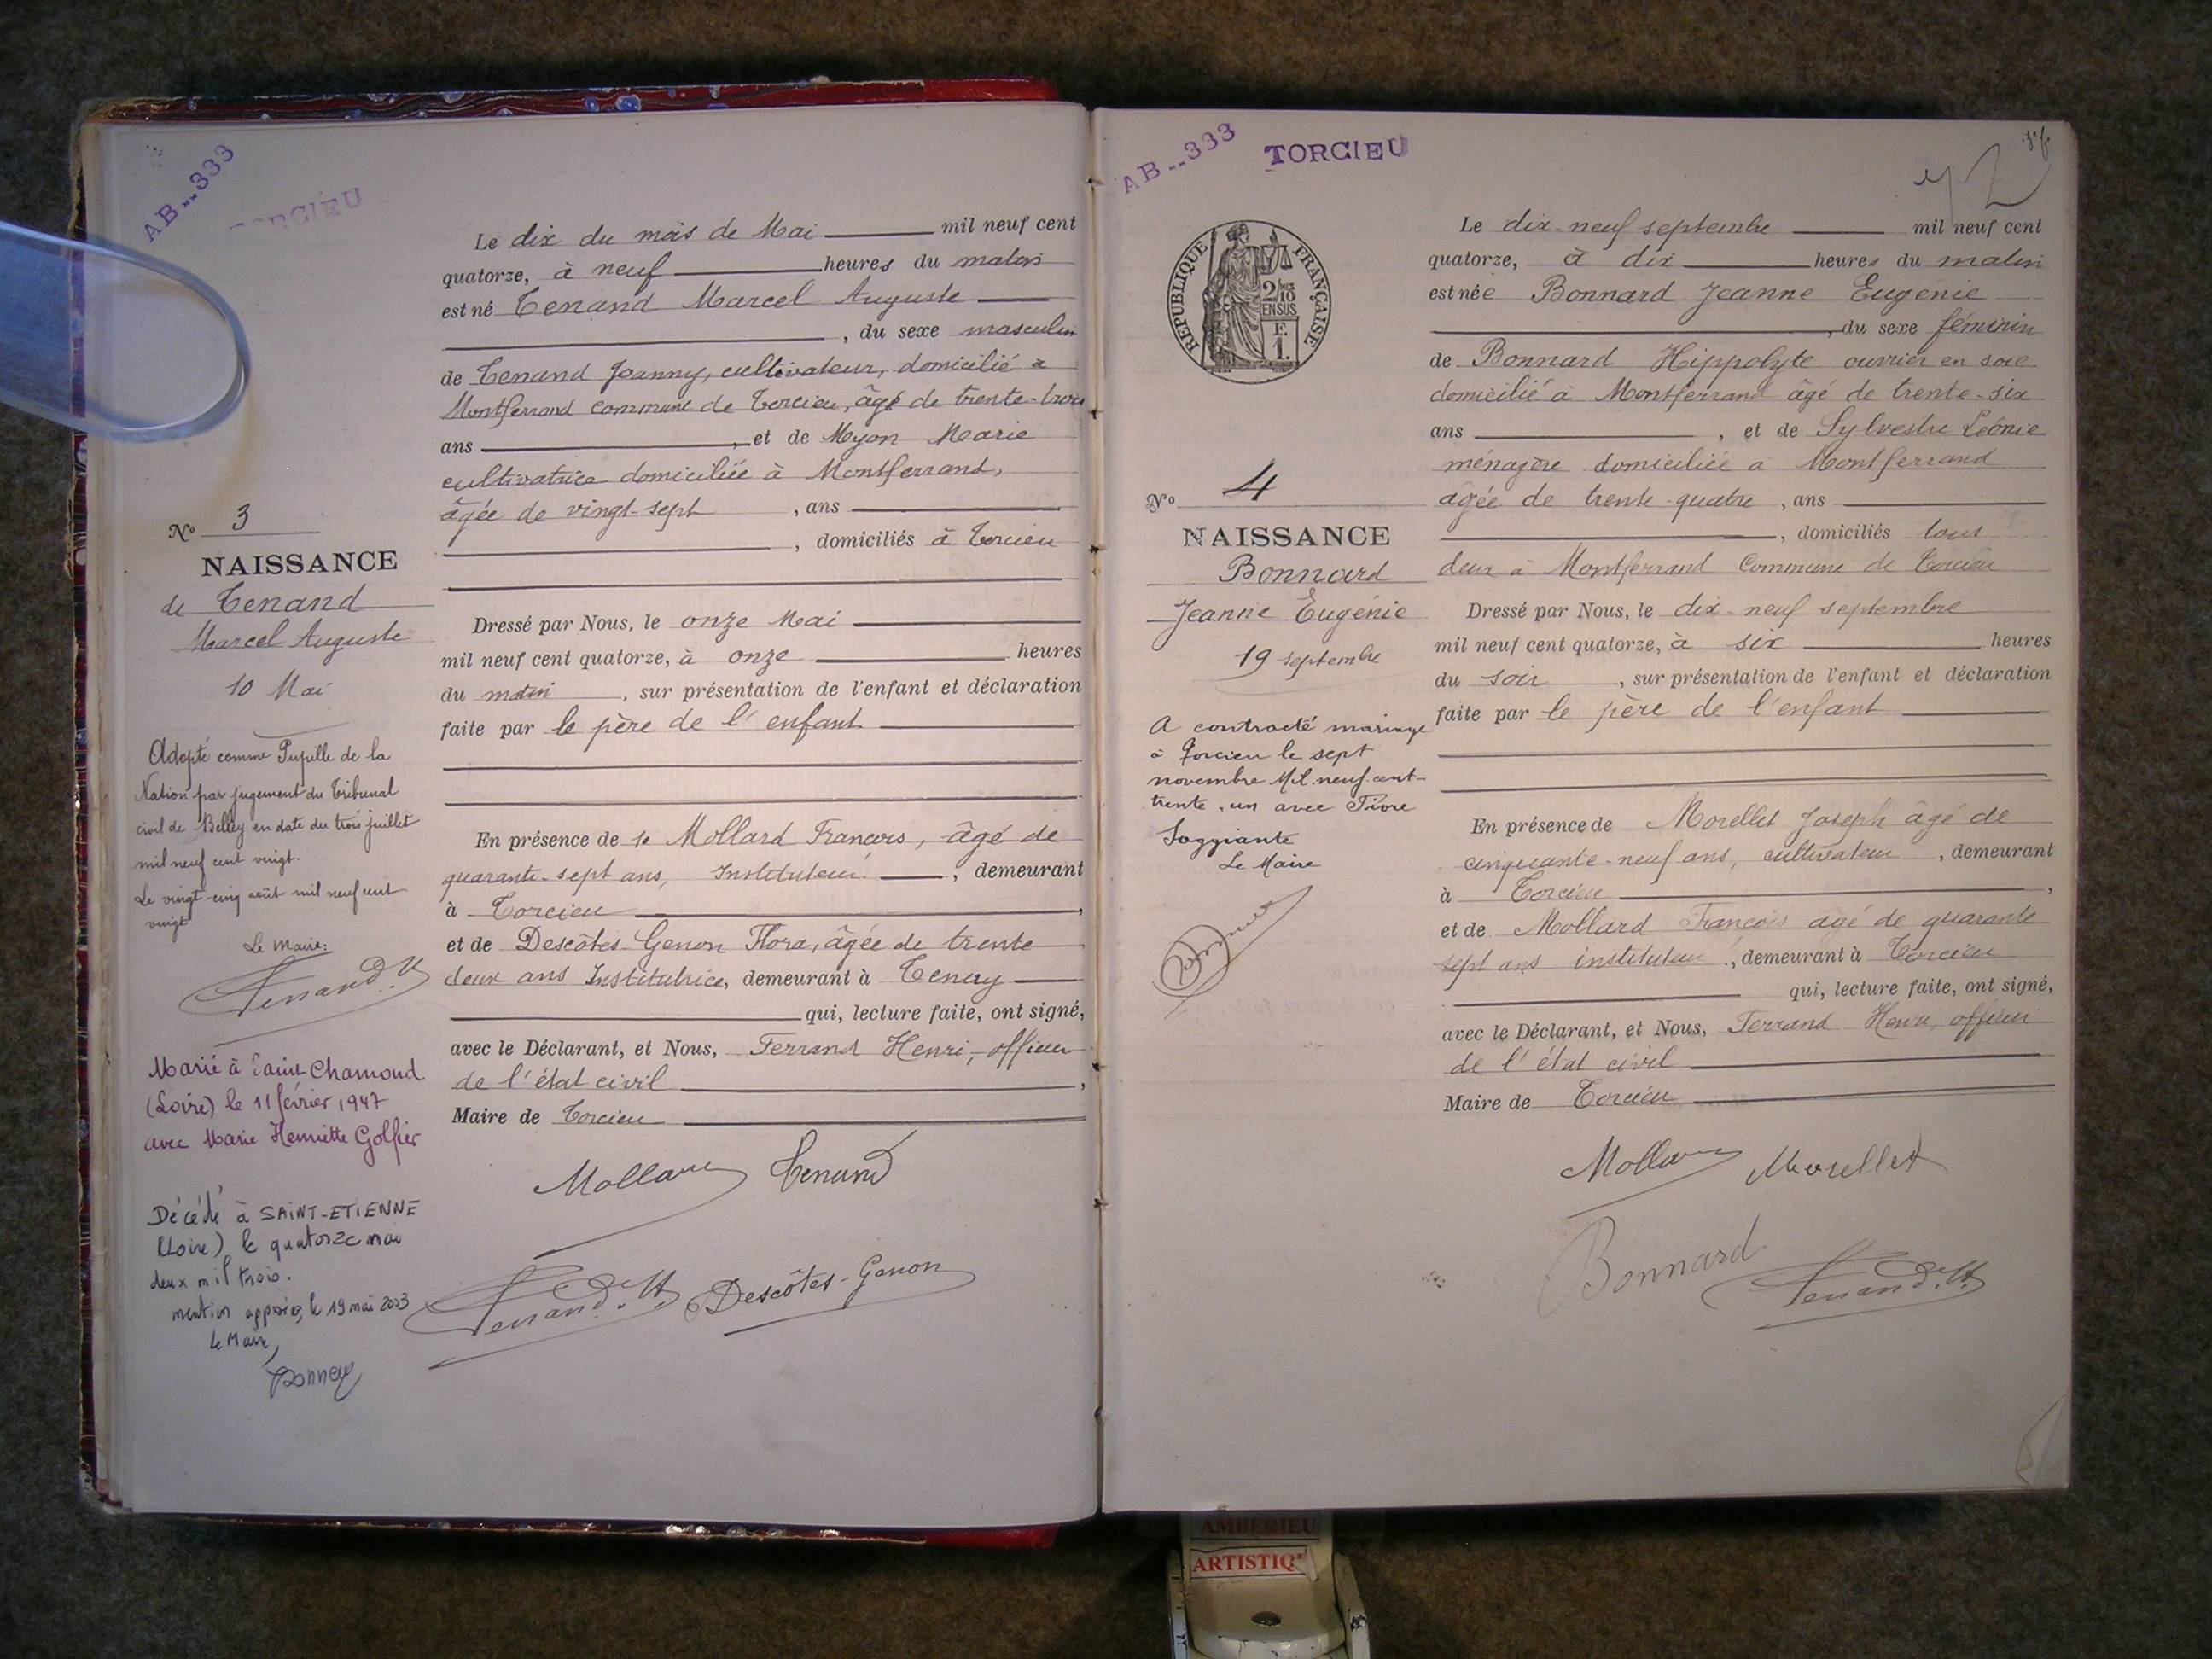 AB--333
TORCIEU
Le dix du mois de Mai mil neuf cent
quatorze, à neuf heures du matin
est né Tenand Marcel Auguste
, du sexe masculin
de Tenand Joanny, cultivateur, domicilié à
Montferrand commune de Torcieu, âgé de trente-trois
ans , et de Myon Marie
cultivatrice domiciliée à Montferrand,
âgée de vingt-sept , ans
, domiciliés à Torcieu
Dressé par Nous, le onze Mai
mil neuf cent quatorze, à onze heures
du matin , sur présentation de l'enfant et déclaration
faite par le père de l'enfant
En présence de 1° Mollard Francois, âgé de
quarante-sept ans, Instituteur , demeurant
à Torcieu ,
et de Descôtes Genon Flora, âgée de trente
deux ans Institutrice, demeurant à Tenay
qui, lecture faite, ont signé,
avec le Déclarant, et Nous, Ferrand Henri, officier
de l'état civil ,
Maire de Torcieu
Mollard Tenand
Ferrand.H. Descôtes-Genon
N° 3
NAISSANCE
de Tenand
Marcel Auguste
10 Mai
Adopté comme Pupille de la
Nation par jugement du Tribunal
civil de Belley en date du trois juillet
mil neuf cent vingt.
Le vingt-cinq août mil neuf cent
vingt
Le Maire:
Ferrand.H
Marié à Saint-Chamond
(Loire) le 11 février 1947
avec Marie Henriette Golfier
Décédé à SAINT-ETIENNE
(Loire) le quatorze mai
deux mil trois.
mention apposée, le 19 mai 2003
Le Maire,
AB--333
TORCIEU
RÉPUBLIQUE FRANÇAISE
2/10
EN SUS
F.
1.
Le dix-neuf septembre mil neuf cent
quatorze, à dix heures du matin
est née Bonnard Jeanne Eugénie
, du sexe féminin
de Bonnard Hippolyte ouvrier en soie
domicilié à Montferrand âgé de trente-six
ans , et de Sylvestre Léonie
ménagère domiciliée à Montferrand
agée de trente-quatre , ans
, domiciliés tous
deux à Montferrand Commune de Torcieu
Dressé par Nous, le dix-neuf septembre
mil neuf cent quatorze, à six heures
du soir , sur présentation de l'enfant et déclaration
faite par le père de l'enfant
En présence de Morellet Joseph âgé de
cinquante-neuf ans, cultivateur , demeurant
à Torcieu ,
et de Mollard François agé de quarante
sept ans instituteur , demeurant à Torcieu
qui, lecture faite, ont signé,
avec le Déclarant, et Nous, Ferrand Henri officier
de l'état civil
Maire de Torcieu
Mollard Morellet
Bonnard Ferrand.H.
N° 4
NAISSANCE
Bonnard
Jeanne Eugénie
19 septembre
A contracté mariage
à Torcieu le sept
novembre Mil neuf cent-
trente-un avec
Soggiante
Le Maire
AMBERIEU
ARTISTIQ